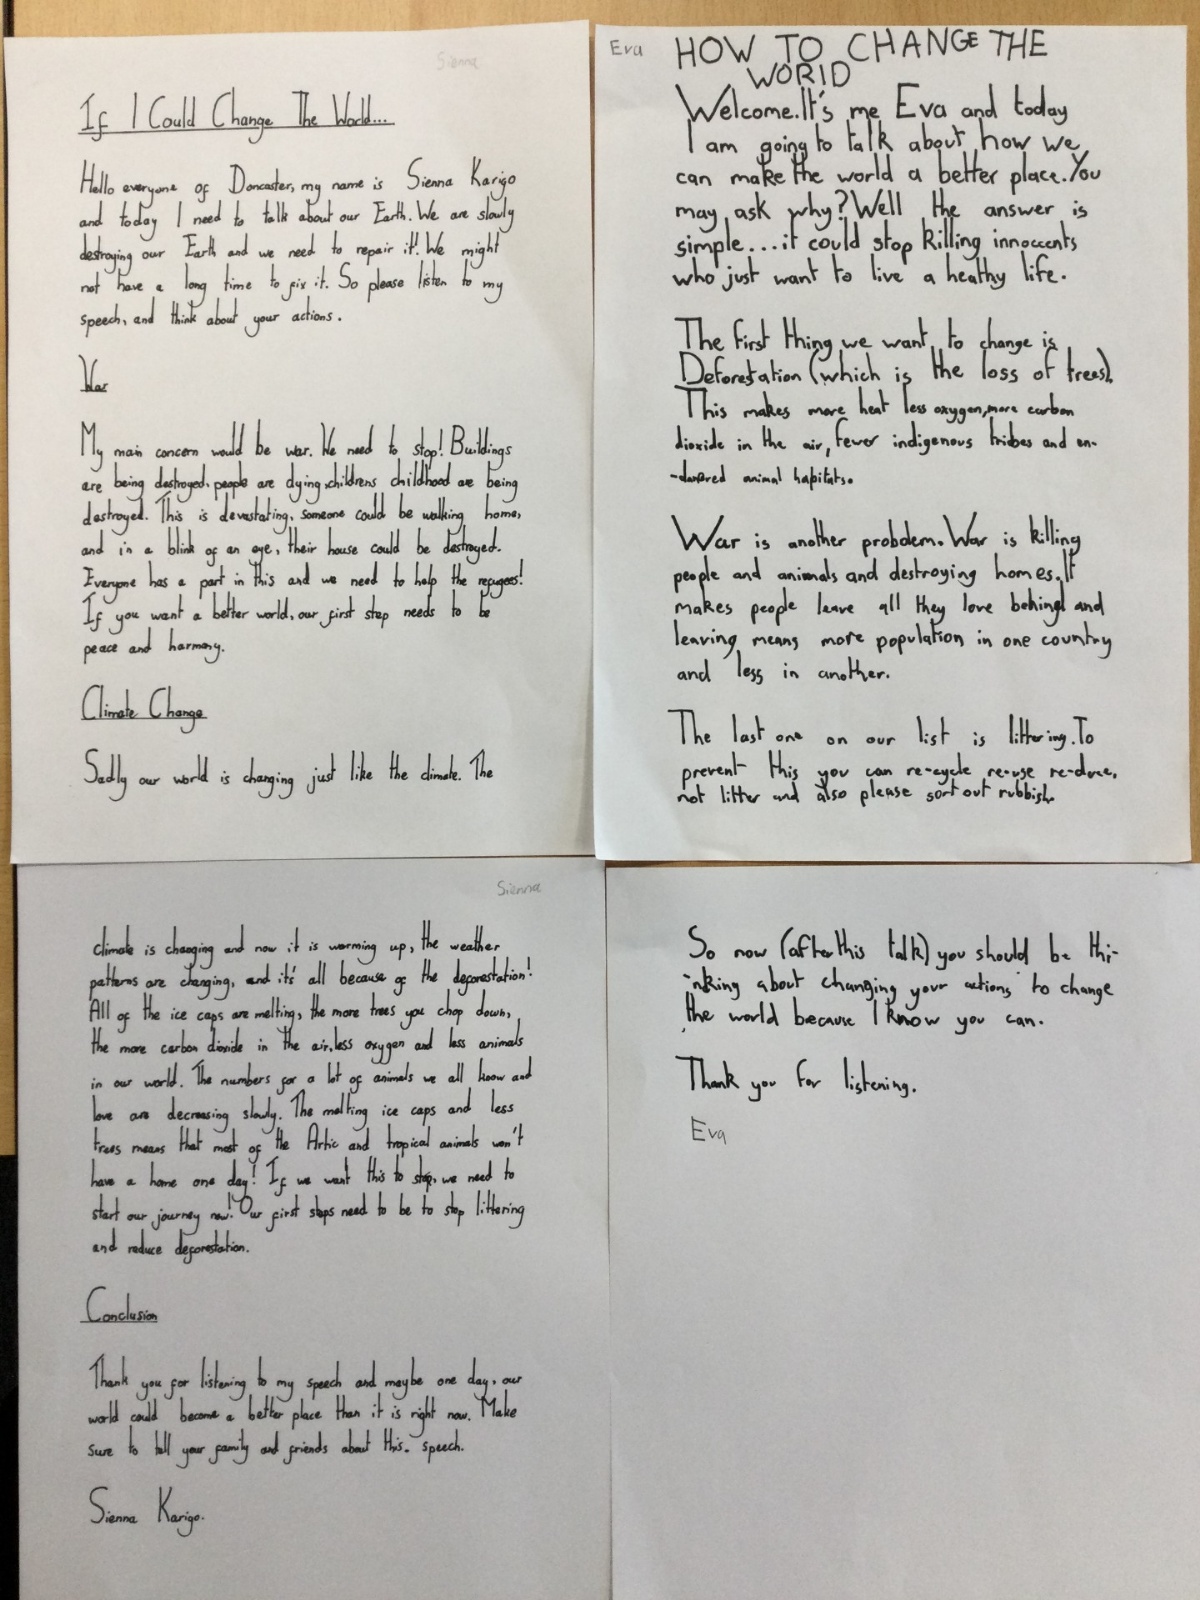 Sienna
If I Could Change The World...
Hello everyone of Doncaster, my name is Sienna Karigo
and today I need to talk about our Earth. We are slowly
destroying our Earth and we need to repair it! We might
not have a long time to fix it. So please listen to my
speech, and think about your actions.
War
My main concern would be war. We need to stop! Buildings
are being destroyed, people are dying, childrens childhood are being
destroyed. This is devastating, someone could be walking home,
and in a blink of an eye, their house could be destroyed.
Everyone has a part in this and we need to help the refugees!
If you want a better world, our first step needs to be
peace and harmony.
Climate Change
Sadly our world is changing just like the climate. The
Sienna
climate is changing and now it is warming up, the weather
patterns are changing, and it's all because of the deforestation!
All of the ice caps are melting, the more trees you chop down,
the more carbon dioxide in the air, less oxygen and less animals
in our world. The numbers for a lot of animals we all know and
love are decreasing slowly. The melting ice caps and less
trees means that most of the Artic and tropical animals won't
have a home one day! If we want this to stop, we need to
start our journey now! Our first steps need to be to stop littering
and reduce deforestation.
Conclusion
Thank you for listening to my speech and maybe one day, our
world could become a better place than it is right now. Make
sure to tell your family and friends about this. speech.
Sienna Karigo.
Eva
HOW TO CHANGE THE
WORlD
Welcome. It's me Eva and today
I am going to talk about how we
can make the world a better place. You
may ask why? Well the answer is
simple...it could stop killing innoccents
who just want to live a healthy life.
The first thing we want to change is
Deforestation (which is the loss of trees).
This makes more heat less oxygen, more carbon
dioxide in the air, fewer indigenous tribes and en-
animal habitats.
War is another probdem. War is killing
people and animals and destroying homes. It
makes people leave all they love behind and
leaving means more population in one country
and less in another.
The last one on our list is littering. To
prevent this you can re-cycle re-use re-duce,
not litter and also please sort out rubbish.
So now (after this talk) you should be thi-
-nking about changing your actions to change
the world because I know you can.
Thank you for listening.
Eva